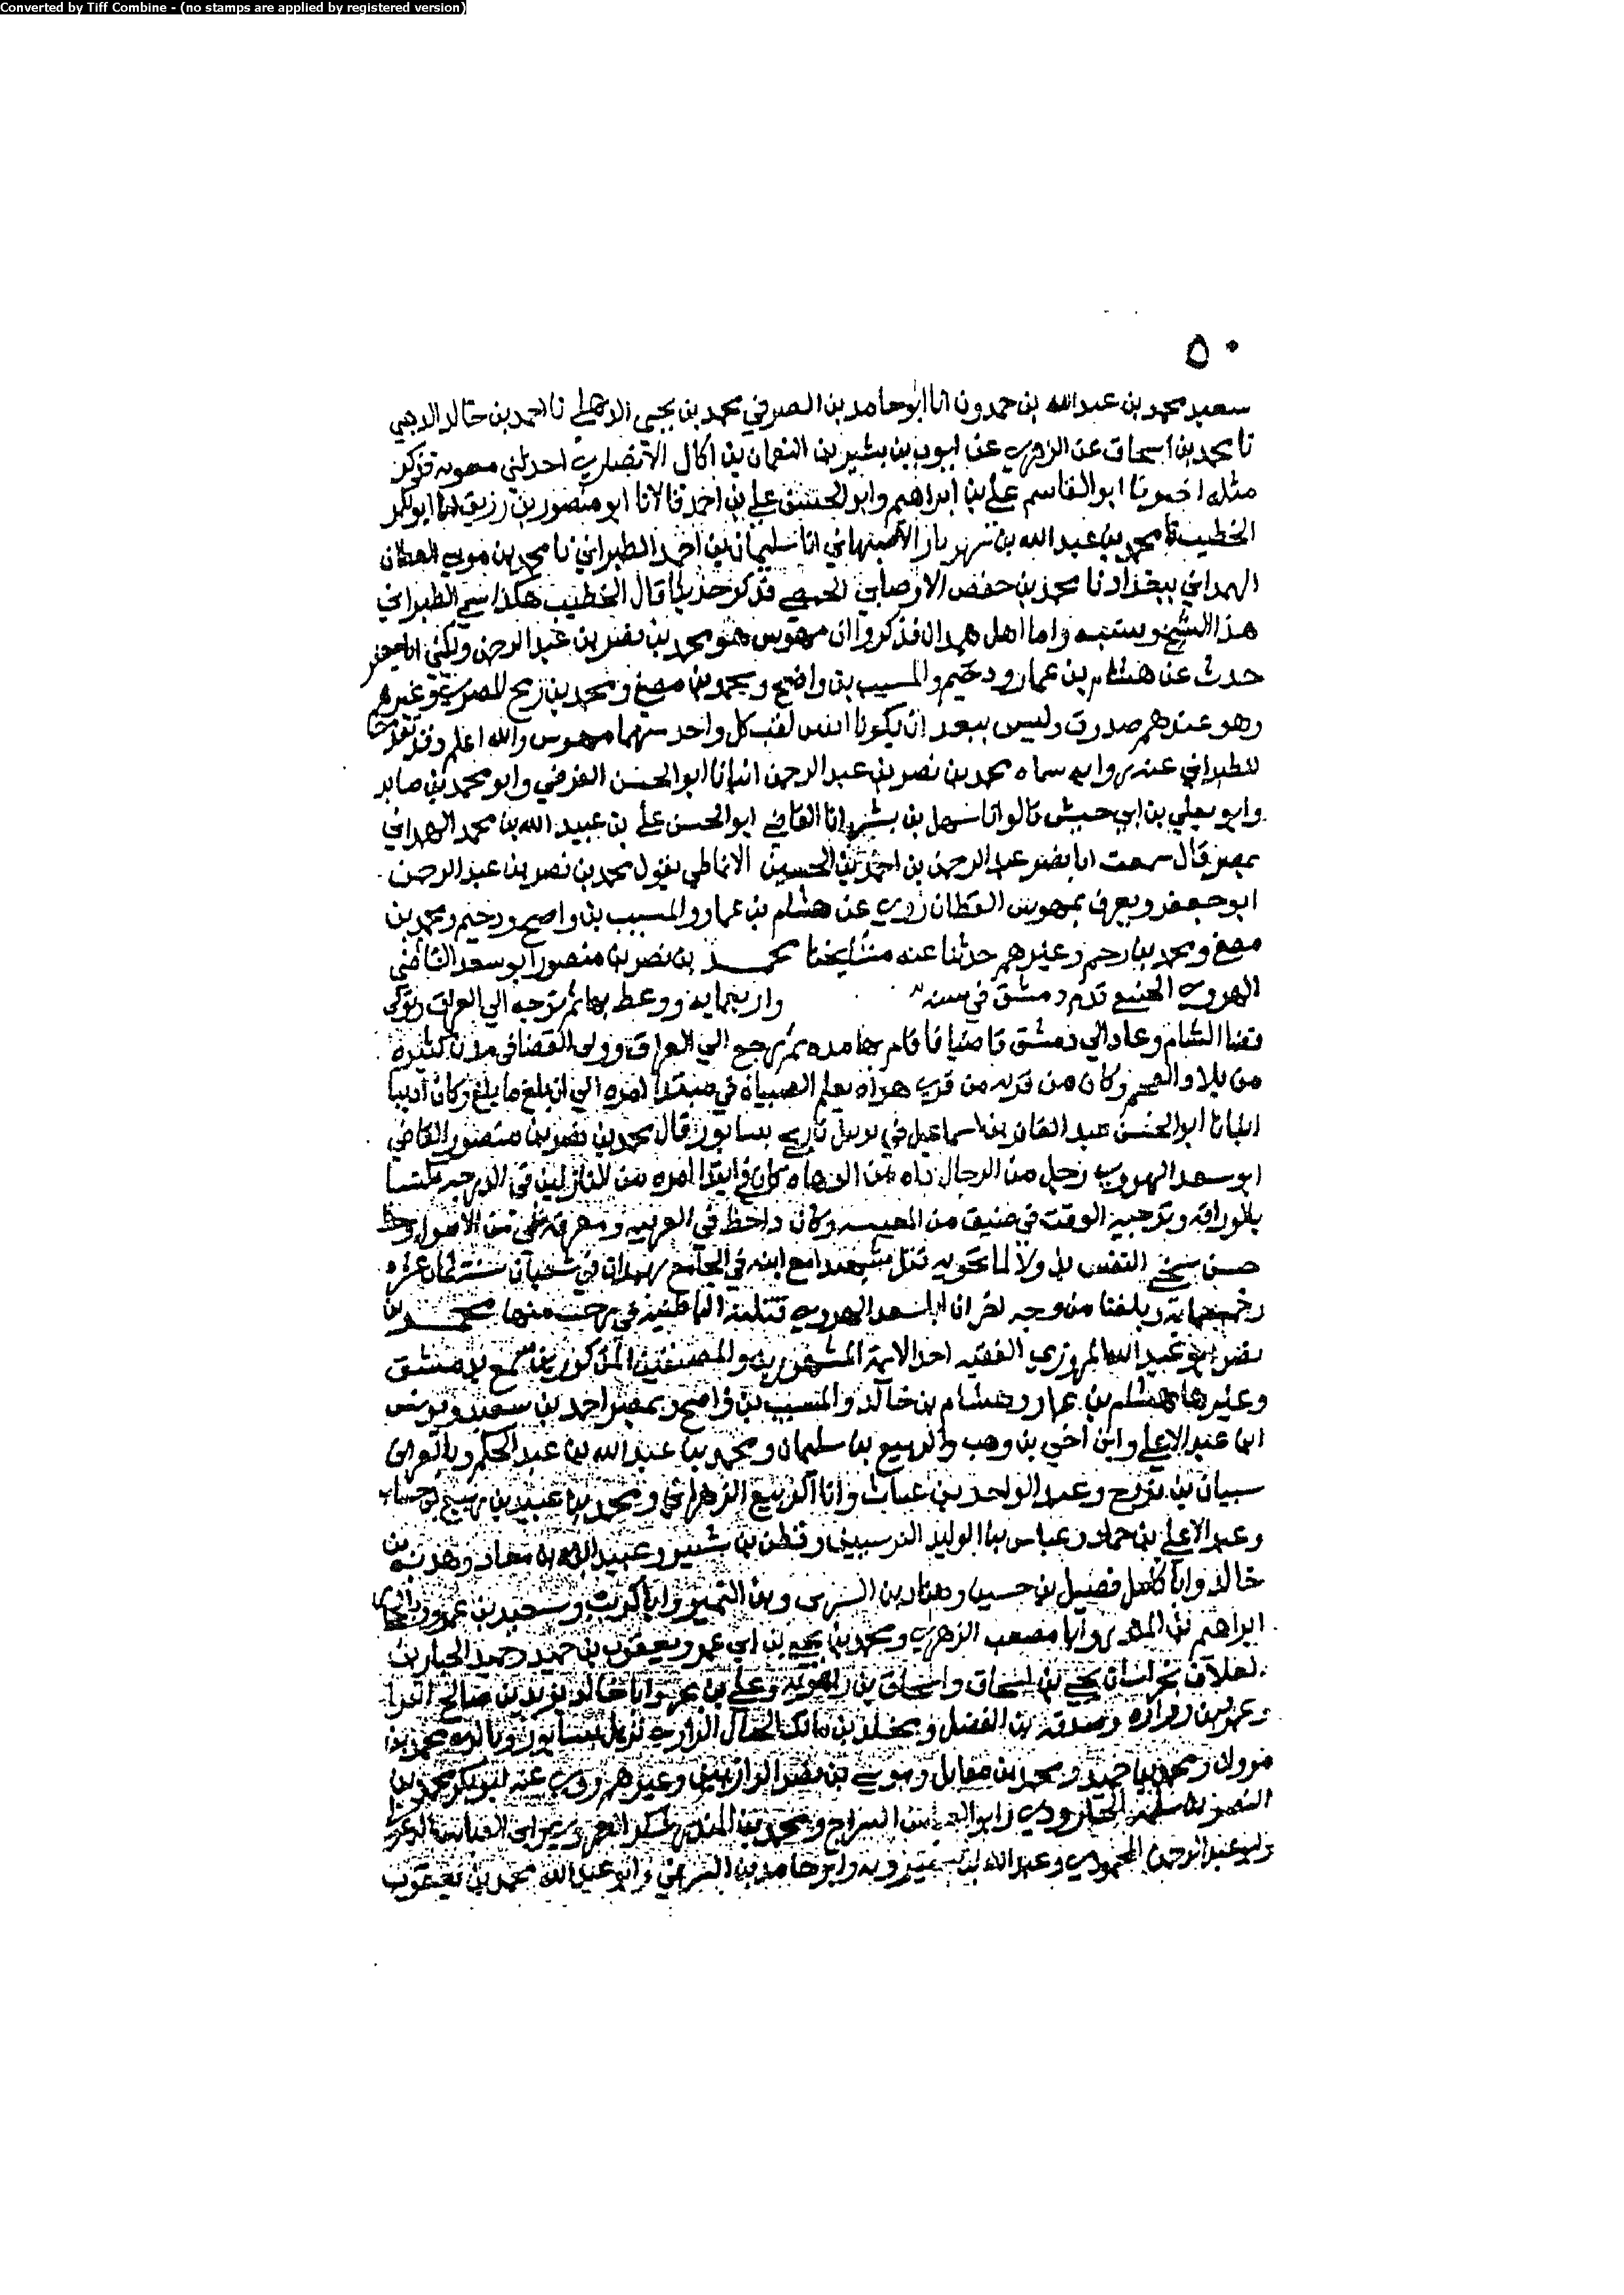 Converted by Tiff Combine - (no stamps are applied by registered version)
٥٠
سعيد محمد بن عبد الله بن حمدون انا ابو حامد بن الصرفي محمد بن يحيى الذهلي نا احمد بن خالد الدهبي
نا محمد بن اسحاق عن الزهري عن ايوب بن بشير بن النعمان بن اكال الانصاري احدثني معوية فذكر
مثله اخبرنا ابو القاسم علي بن ابراهيم وابو الحسن علي بن احمد قالا نا ابو منصور بن رزيق انا ابو بكر
الخطيب نا محمد بن عبد الله بن شهريار الاصبهاني انا سليمان بن احمد الطبراني نا محمد بن موسى القطان
الهمداني ببغداد نا محمد بن حفص الاوصابي الحمصي فذكر حديثا قال الخطيب هكذا سمى الطبراني
هذا الشيخ ونسبه واما اهل همدان فذكروا ان مموس هو محمد بن نصر بن عبد الرحمن ويكنى ابا جعفر
حدث عن هشام بن عمار ودحيم والمسيب بن واضح ومحمد بن مصفى ومحمد بن رمح المصري وغيرهم
وهو عندهم صدوق وليس ببعد ان يكونا اثنين لقب كل واحد منهما مموس والله اعلم وقد تقدمنا
للطبراني عنه رواية سماه محمد بن نصر بن عبد الرحمن انبانا ابو الحسن الفرضي وابو محمد بن صابر
وابو يعلي بن ابي حبيش قالوا انا سهل بن بشر انا القاضي ابو الحسن علي بن عبيد الله بن محمد الهمداني
بمصر قال سمعت ابا نصر عبد الرحمن بن احمد بن الحسين الانماطي يقول محمد بن نصر بن عبد الرحمن
ابو جعفر ويعرف بمموس القطان روى عن هشام بن عمار والمسيب بن واضح ودحيم ومحمد بن
مصفى ومحمد بن رمح وغيرهم حدثنا عنه مشايخنا محمد بن نصر بن منصور ابو سعد القاضي
الهروي الحنفي قدم دمشق في سنة واربعماية ووعظ بها ثم توجه الى العراق وتولى
قضا الشام وعاد الى دمشق قاضيا فاقام بها مدة ثم رجع الى العراق وولى القضا في مدن كثيرة
من بلاد العجم وكان من قرية من قرى هراة يعلم الصبيان في مبتدا امره الى ان بلغ ما بلغ وكان اديبا
انبانا ابو الحسن عبد الغافر بن اسماعيل في تاريخ نيسابور قال محمد بن نصر بن منصور القاضي
ابو سعد الهروي رجل من الرجال داه من الدهاة كان في ابتدا امره من النازلين في الدرجة ملتبسا
بالوراقة وتوجيه الوقت في ضيق من المعيسة وكان ذا حظ في العربية ومعرفة من الاصول وخط
حسن سخي النفس بذولا لما يحويه قتل مع ابنه في الجامع بهمدان في شعبان سنة ثمان عشرة
وخمسماية وبلغنا من وجه اخر ان ابا سعد الهروي قتلته الباطنية في رجب منها محمد بن
نصر ابو عبد الله المروزي الفقيه احد الايمة المشهورين والمصنفين المذكورين سمع بدمشق
وغيرها هشام بن عمار وهشام بن خالد والمسيب بن واضح وبمصر احمد بن سعيد ويونس
ابن عبد الاعلى وابن اخي بن وهب والربيع بن سليمان ومحمد بن عبد الله بن عبد الحكم وبالعراق
سيبان بن فروخ وعبد الواحد بن غياث وابا الربيع الزهراني ومحمد بن عبيد بن حساب
وعبد الاعلى بن حماد وعباس بن الوليد النرسيين وقطن بن نسير وعبيد الله بن معاذ وهدبة بن
خالد وابا كامل فضيل بن حسين وهناد بن السري وبن النمير وابا كريب وسعيد بن عمرو
ابراهيم بن المنذر وابا مصعب الزهري ومحمد بن يحيى بن ابي عمر ويعقوب بن حميد وعبد الجبار بن
العلا وبخراسان يحيى بن اسحاق واسحاق بن راهويه وعلي بن حجر وابا خالد يزيد بن صالح الفرا
وعمرو بن زرارة وصدقة بن الفضل ومخلد بن مالك الجمال الرازي نزيل نيسابور وبالري محمد بن
مهران ومحمد بن حميد ومحمد بن مقاتل وموسى بن نصر الرازيين وغيرهم روى عنه ابو بكر محمد بن
النضر بن سلمة الجارودي وابو العباس السراج ومحمد بن المنذر شكر الهروي وابو العباس الدغولي
عبد الرحمن المحمودي وعبد الله بن شيرويه وابو حامد بن الشرقي وابو عبد الله محمد بن يعقوب